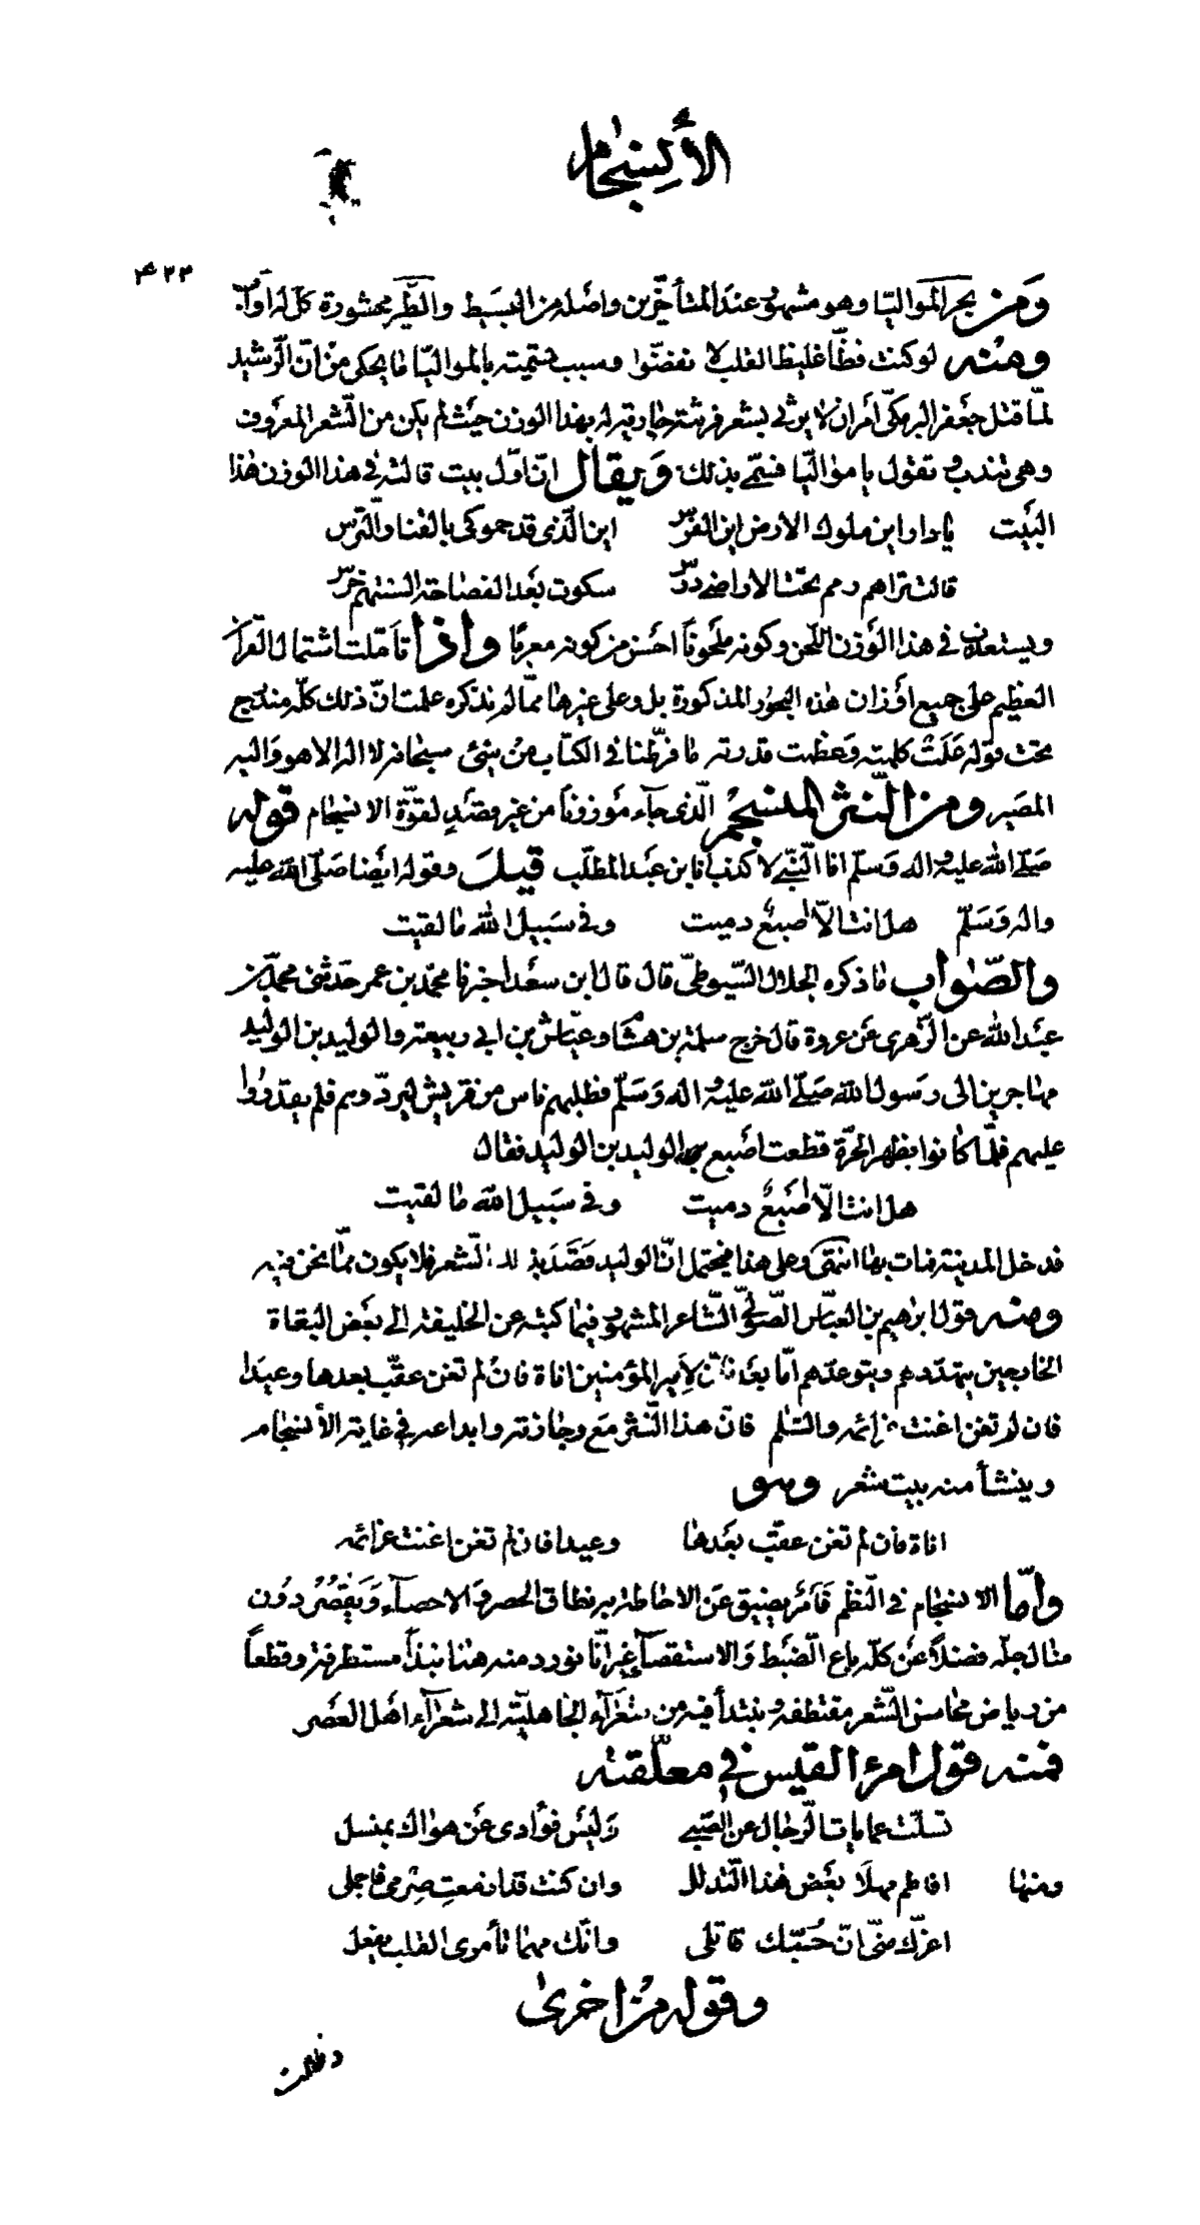 الأنسجام
٤٢٣
ومن بحر المواليّا وهو مشهور عند المتأخّرين واصله من البسيط والطّير محشورة كلّ له أوّاب
ومنه لو كنت فظّا غليظ القلب لا نفضّوا وسبب تسميته بالمواليّا ما يحكى من انّ الرّشيد
لمّا قتل جعفر البرمكيّ أمر ان لا يرثى بشعر فرثته جاريته له بهذا الوزن حيث لم يكن من الشّعر المعروف
وهي تندب وتقول يا مواليّا فسمّى بذلك ويقال انّ اوّل بيت قالته في هذا الوزن هذا
البيت يا دار اين ملوك الارض اين الفرس اين الّذي قد حموكي بالقنا والتّرس
قالت تراهم رمم تحت الاراضي درس سكوت بعد الفصاحة السنتهم خرس
ويستعذب في هذا الوزن اللّحن وكونه ملحونا احسن من كونه معربا واذا تأمّلت اشتمال القرآن
العظيم على جميع أوزان هذه البحور المذكورة بل وعلى غيرها ممّا لم نذكره علمت انّ ذلك كلّه مندرج
تحت قوله علت كلمته وعظمت قدرته ما فرّطنا في الكتاب من شيء سبحانه لا اله الا هو واليه
المصير ومن النّثر المنسجم الّذي جآء موزونا من غير قصد لقوّة الانسجام قوله
صلّى الله عليه واله وسلّم انا النّبي لا كذب انا ابن عبد المطّلب قيل وقوله ايضا صلّى الله عليه
واله وسلّم هل انت الّا اصبع دميت وفي سبيل الله ما لقيت
والصّواب ما ذكره الجلال السّيوطيّ قال قال ابن سعد اخبرنا محمّد بن عمر حدّثني محمّد بن
عبد الله عن الزّهري عن عروة قال خرج سلمة بن هشام وعيّاش بن ابي ربيعة والوليد بن الوليد
مهاجرين الى رسول الله صلّى الله عليه واله وسلّم فطلبهم ناس من قريش ليردّوهم فلم يقدروا
عليهم فلمّا كانوا بظهر الحرّة قطعت اصبع الوليد بن الوليد فقال
هل انت الّا اصبع دميت وفي سبيل الله ما لقيت
فدخل المدينة فمات بها انتهى وعلى هذا فيحتمل انّ الوليد قصد بذلك الشّعر فلا يكون ممّا نحن فيه
ومنه قول ابراهيم بن العبّاس الصّولي الشّاعر المشهور فيما كتبه عن الخليفة الى بعض البغاة
الخارجين يتهدّدهم ويتوعّدهم امّا بعد فانّ لأمير المؤمنين اناة فان لم تغن عقّب بعدها وعيدا
فان لم تغن اغنت عزائمه والسّلام فانّ هذا النّثر مع وجازته وابداعه في غاية الأنسجام
وينشأ منه بيت شعر وهو
اناة فان لم تغن عقّب بعدها وعيدا فان لم تغن اغنت عزائمه
وامّا الانسجام في النّظم فأمر يضيق عن الاحاطة به نطاق الحصر والاحصآء ويقصر دون
منال جلّه فضلا عن كلّه باع الضبط والاستقصآء غير انّا نورد منه هنا نبذا مستطرفة وقطعا
من رياض محاسن الشّعر مقتطفة ونبتدأ فيه من شعرآء الجاهليّة الى شعرآء اهل العصر
فمنه قول امرء القيس في معلّقته
تسلّت عمايات الرّجال عن الصّبى وليس فؤادي عن هواك بمنسل
ومنها افاطم مهلا بعض هذا التّدلل وان كنت قد ازمعت صرمي فاجملي
اغرّك منّي انّ حبّك قاتلي وانّك مهما تأمرى القلب يفعل
وقوله من اخرى